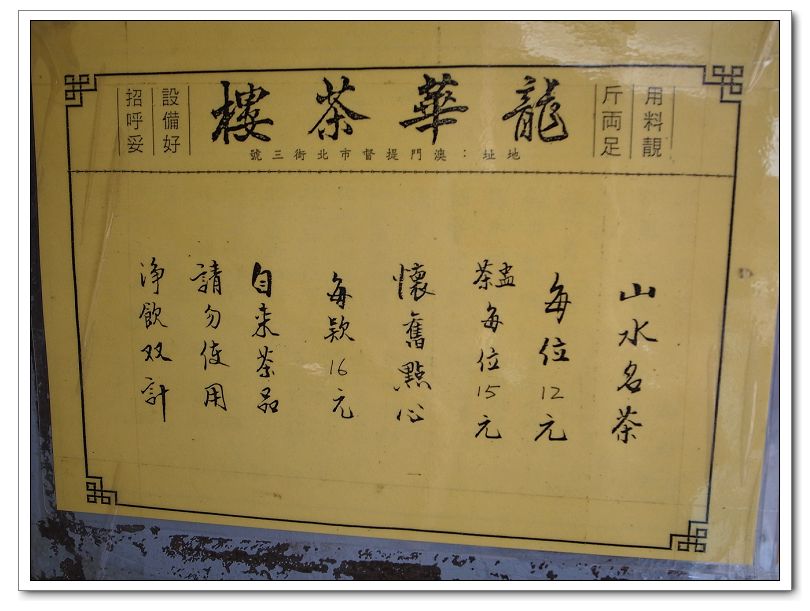 龍華茶樓
地址：澳門提督市北街三號
用料靚
斤両足
設備好
招呼妥
山水名茶
每位12元
茶盅每位15元
懷舊點心
每款16元
自来茶品
請勿使用
净飲双計